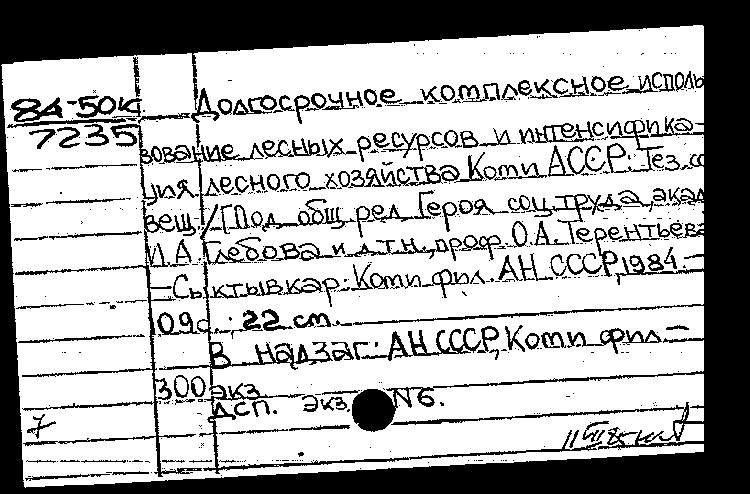 84-50к
7235
Долгосрочное комплексное исполь
зование лесных ресурсов и интенсифика-
ция лесного хозяйства Коми АССР: Тез. со
вещ. / [Под общ. ред. Героя соц. труда, акад
И.А. Глебова и д.т.н., проф. О.А. Терентьева
—Сыктывкар: Коми фил. АН СССР, 1984.—
109с.; 22 см.
В надзаг.: АН СССР, Коми фил.—
300 экз
ДСП. экз N6.
7